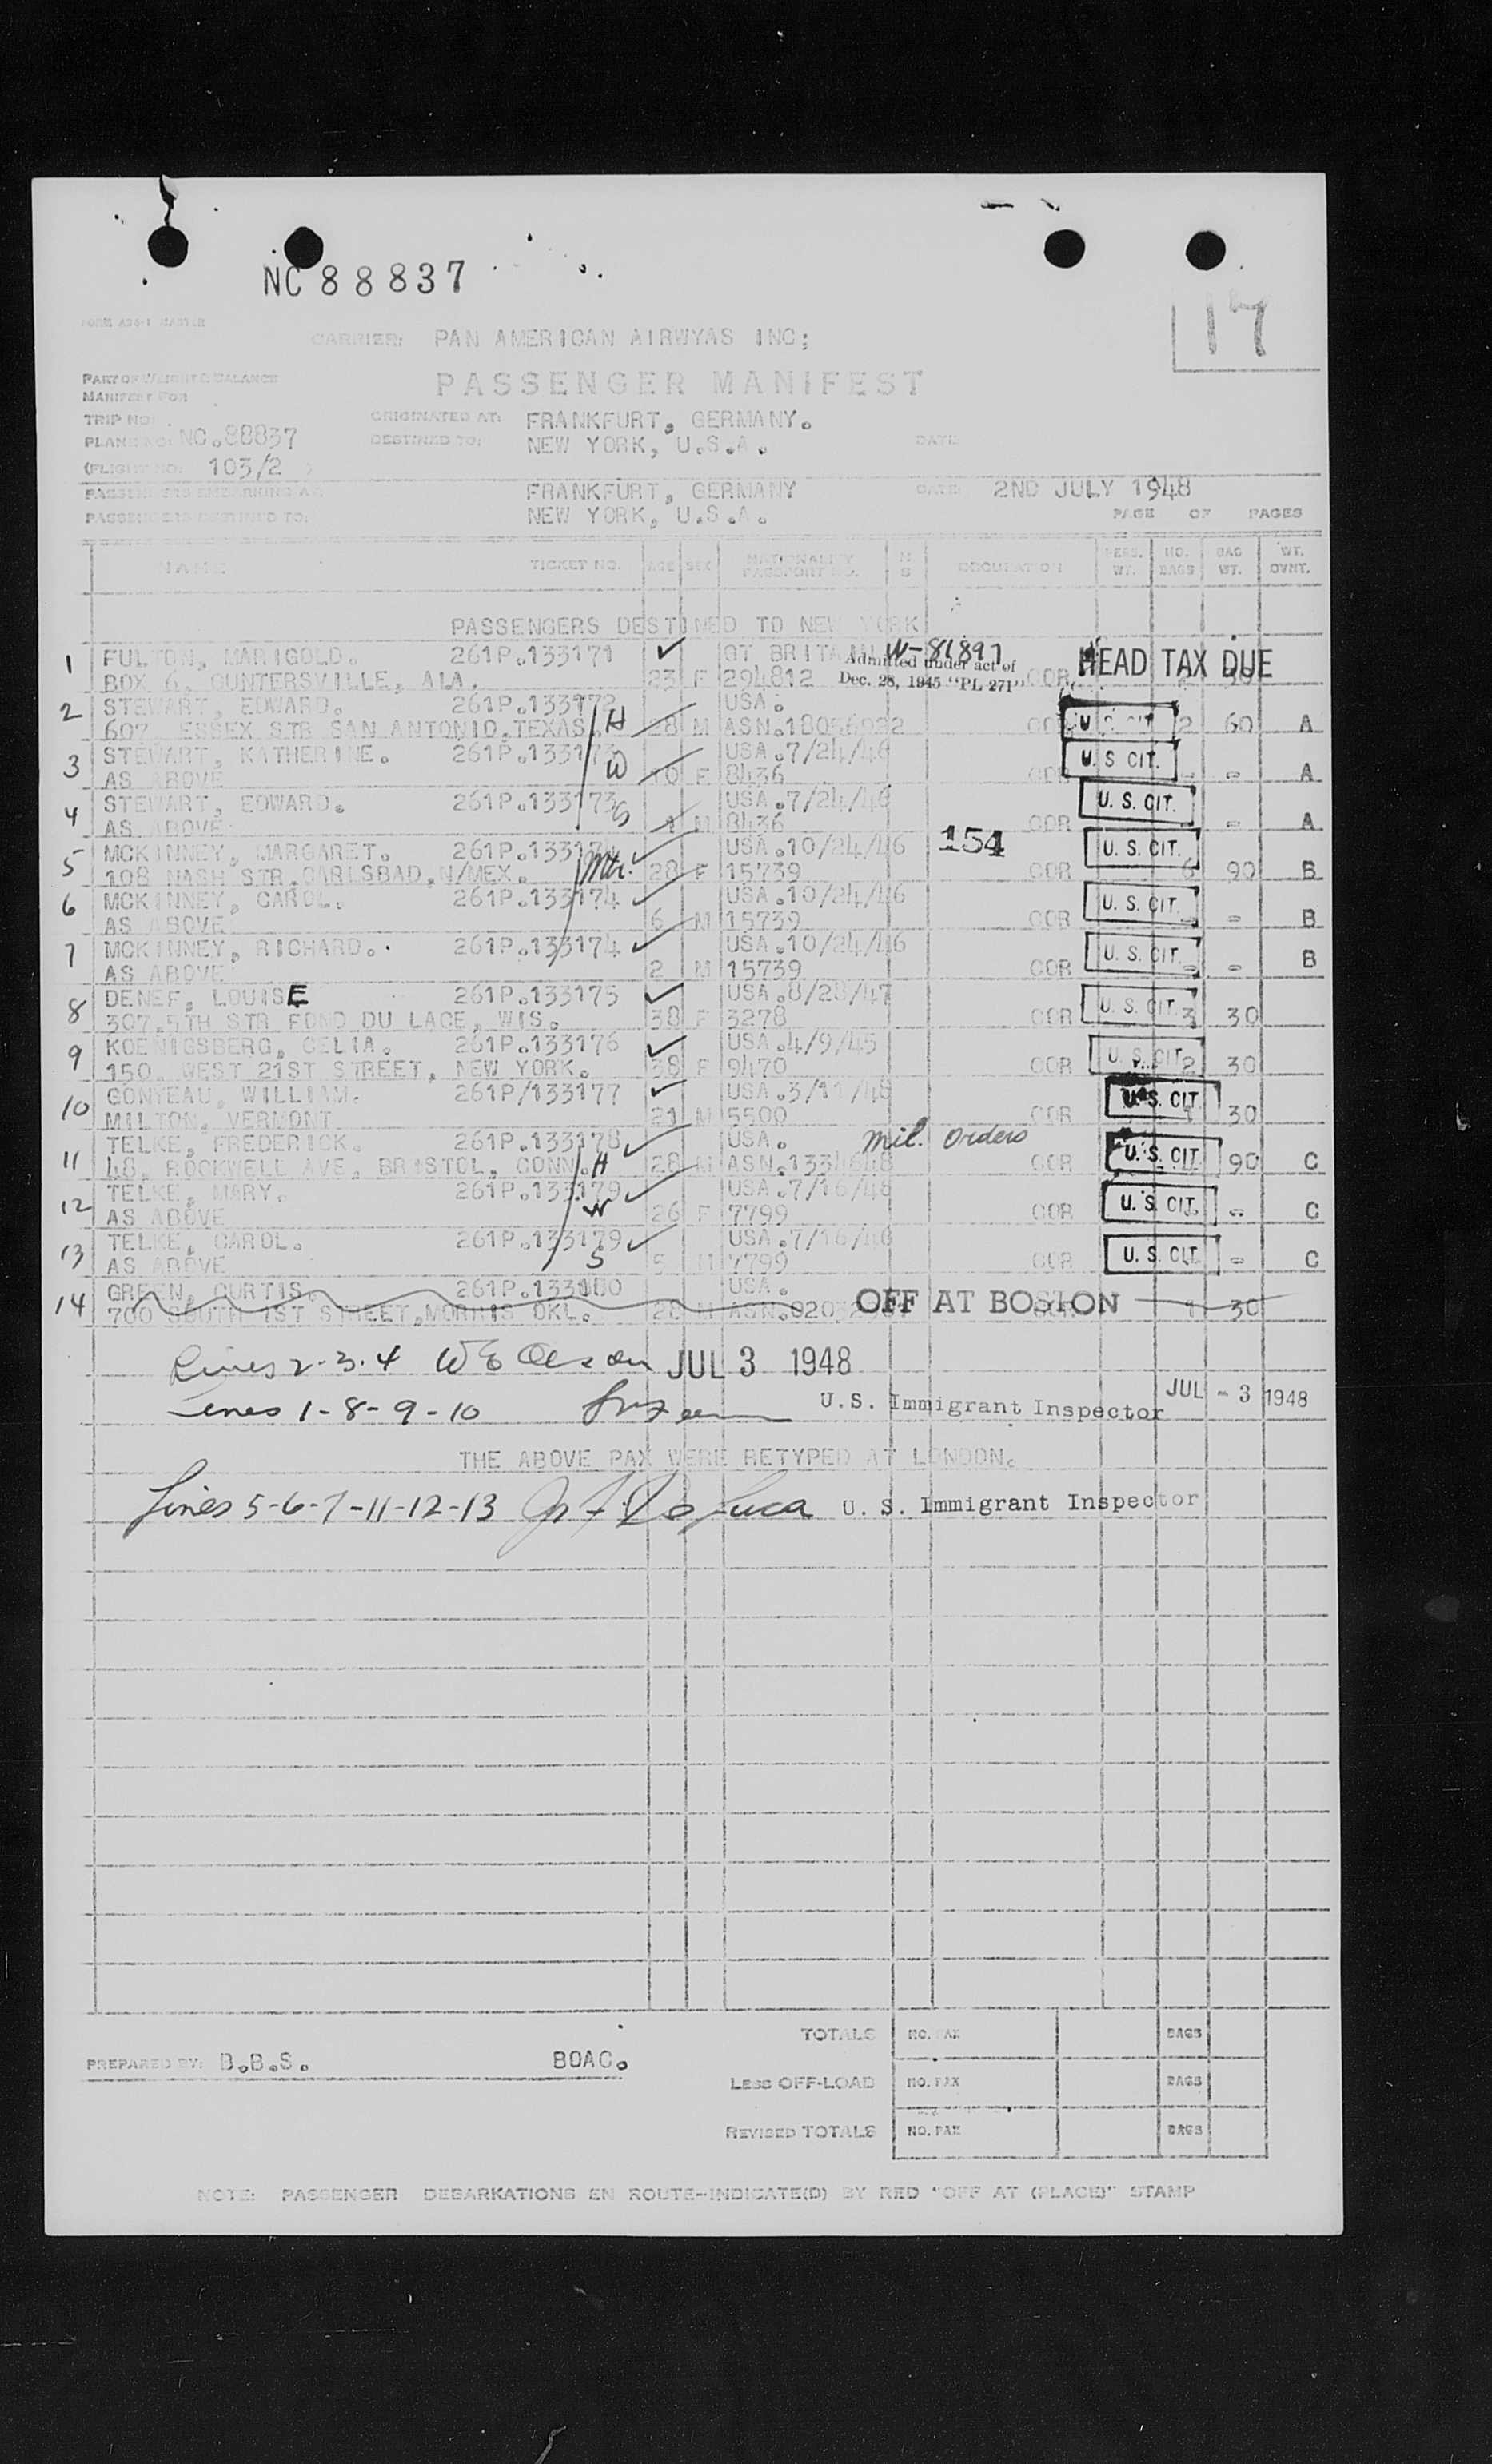 NC 88837
17
FORM A24-1 MASTER
CARRIER: PAN AMERICAN AIRWYAS INC;
PART OF WEIGHT & BALANCE
MANIFEST FOR
PASSENGER MANIFEST
TRIP NO.
ORIGINATED AT: FRANKFURT, GERMANY.
PLANE NO: NC.88837
DESTINED TO: NEW YORK, U.S.A. DATE:
(FLIGHT NO: 103/2 )
PASSENGERS EMBARKING AT: FRANKFURT, GERMANY DATE: 2ND JULY 1948
PASSENGERS DESTINED TO: NEW YORK, U.S.A. PAGE OF PAGES
NAME TICKET NO. AGE SEX NATIONALITY PASSPORT NO. OCCUPATION PERS. WT. NO. BAGS BAG WT. WT. OVNT.
PASSENGERS DESTINED TO NEW YORK
1 FULTON, MARIGOLD. 261P.133171 GT BRITAIN W-81897 HEAD TAX DUE
BOX 6, GUNTERSVILLE, ALA. 23 F 294812 Admitted under act of Dec. 28, 1945 "PL 271" COR
2 STEWART, EDWARD. 261P.133172 USA.
607 ESSEX STR SAN ANTONIO,TEXAS. H 28 M COR U. S. CIT. 2 60 A
3 STEWART, KATHERINE. 261P.133173 USA.7/24/46
AS ABOVE W F 8436 COR U. S. CIT. - - A
4 STEWART, EDWARD. 261P.133173 USA.7/24/46
AS ABOVE S M 8436 COR U. S. CIT. - A
5 MCKINNEY, MARGARET. 261P.133174 USA.10/24/46 154
108 NASH STR,CARLSBAD,N/MEX. Mtr. 28 F 15739 COR U. S. CIT. 6 90 B
6 MCKINNEY, CAROL. 261P.133174 USA.10/24/46
AS ABOVE 6 M 15739 COR U. S. CIT. - - B
7 MCKINNEY, RICHARD. 261P.133174 USA.10/24/46
AS ABOVE 2 M 15739 COR U. S. CIT. - - B
8 DENEF, LOUISE 261P.133175 USA.8/28/47
307.5TH STR FOND DU LACE, WIS. 38 F 3278 COR U. S. CIT. 3 30
9 KOENIGSBERG, CELIA. 261P.133176 USA.4/9/45
150. WEST 21ST STREET, NEW YORK. 38 F 9470 COR U. S. CIT. 2 30
10 GONYEAU, WILLIAM. 261P/133177 USA.3/11/48
MILTON, VERMONT 21 M 5500 COR U. S. CIT. 1 30
11 TELKE, FREDERICK. 261P.133178 USA. mil. orders
48, ROCKWELL AVE, BRISTOL, CONN. H 28 M COR U. S. CIT. 90 C
12 TELKE, MARY. 261P.133179 USA.7/16/46
AS ABOVE W 26 F 7799 COR U. S. CIT. - C
13 TELKE, CAROL. 261P.133179 USA.7/16/46
AS ABOVE S 5 M 7799 COR U. S. CIT. - C
14 GREEN, CURTIS. 261P.133180 USA.
700 SOUTH 1ST STREET,MORRIS OKL. 28 M OFF AT BOSTON 1 30
Lines 2-3-4 W E Olson JUL 3 1948
Lines 1-8-9-10 U.S. Immigrant Inspector JUL - 3 1948
THE ABOVE PAX WERE RETYPED AT LONDON.
Lines 5-6-7-11-12-13 U. S. Immigrant Inspector
TOTALS NO. PAX BAGS
PREPARED BY: B.B.S. BOAC.
LESS OFF-LOAD NO. PAX BAGS
REVISED TOTALS NO. PAX BAGS
NOTE: PASSENGER DEBARKATIONS EN ROUTE-INDICATE(D) BY RED "OFF AT (PLACE)" STAMP